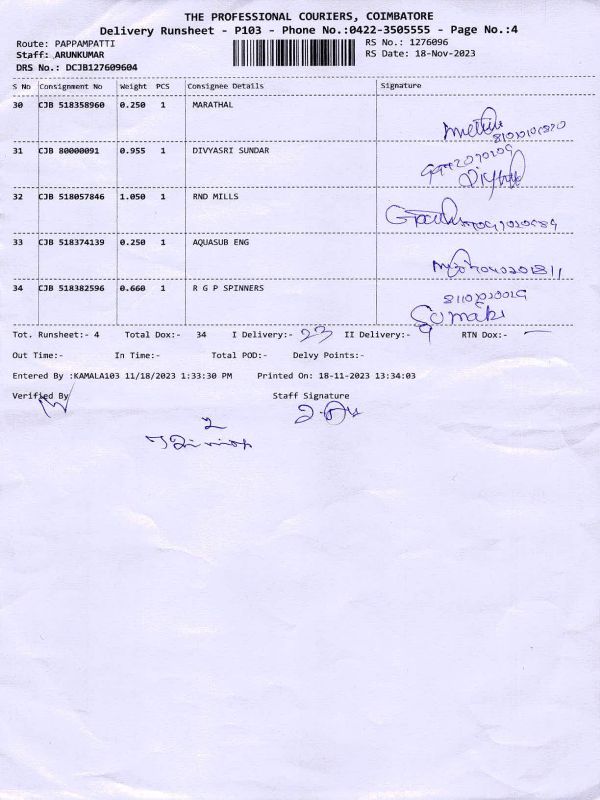 THE PROFESSIONAL COURIERS, COIMBATORE
Delivery Runsheet - P103 - Phone No.:0422-3505555 - Page No.:4
Route: PAPPAMPATTI RS No.: 1276096
Staff: ARUNKUMAR RS Date: 18-Nov-2023
DRS No.: DCJB127609604
S No Consignment No Weight PCS Consignee Details Signature
30 CJB 518358960 0.250 1 MARATHAL
31 CJB 80000091 0.955 1 DIVYASRI SUNDAR
32 CJB 518057846 1.050 1 RND MILLS
33 CJB 518374139 0.250 1 AQUASUB ENG
34 CJB 518382596 0.660 1 R G P SPINNERS
Tot. Runsheet:- 4 Total Dox:- 34 I Delivery:- 23 II Delivery:- 9 RTN Dox:- —
Out Time:- In Time:- Total POD:- Delvy Points:-
Entered By :KAMALA103 11/18/2023 1:33:30 PM Printed On: 18-11-2023 13:34:03
Verified By Staff Signature
2